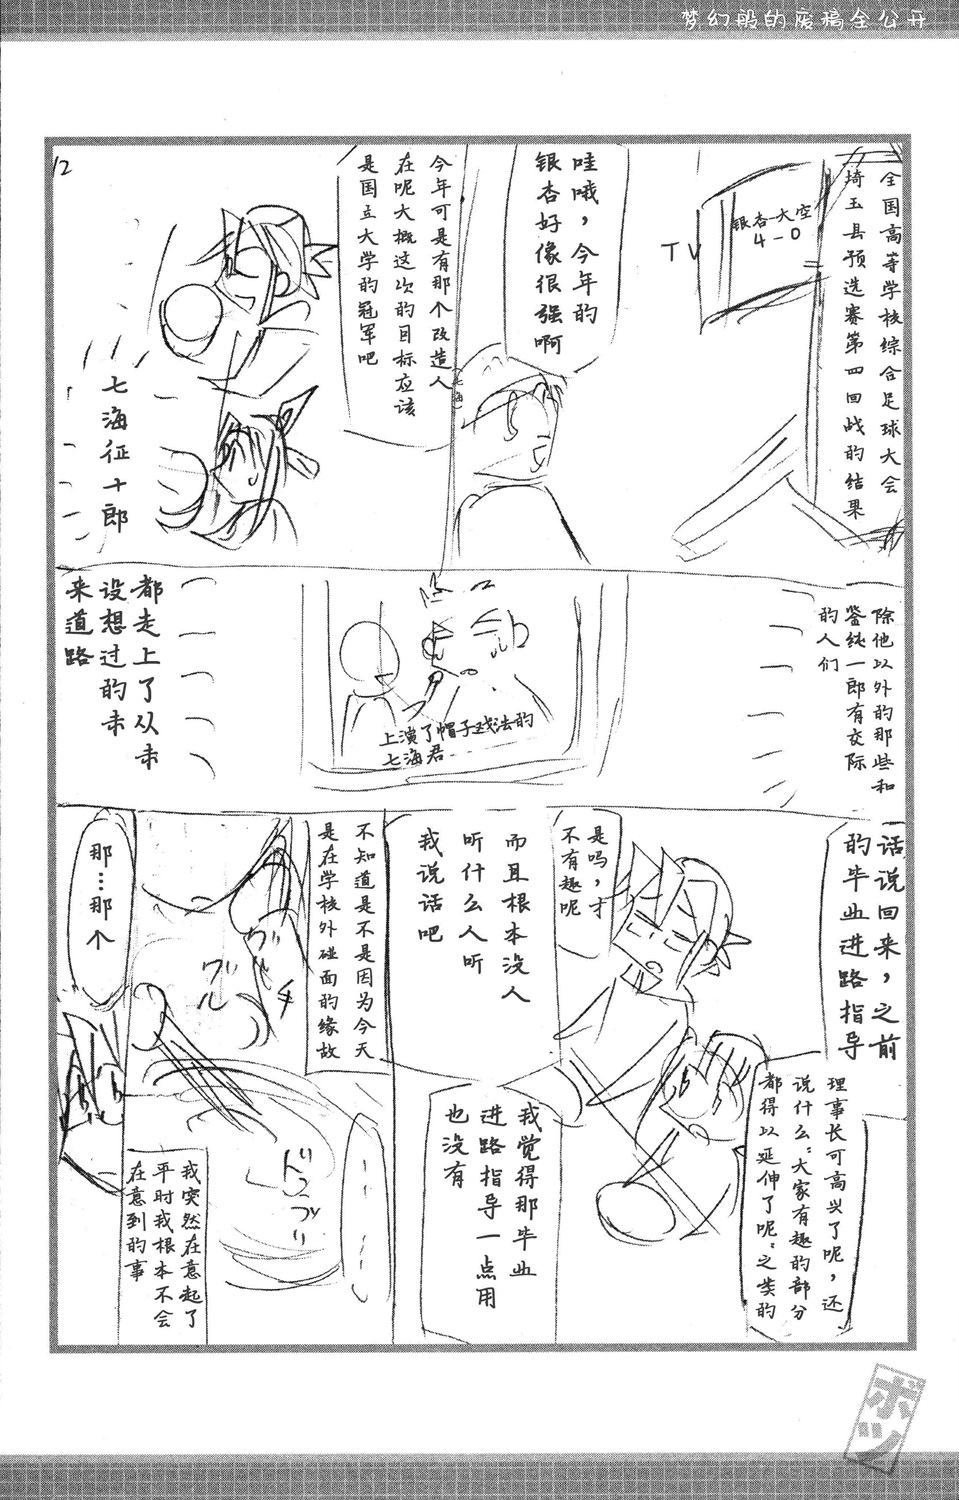 梦幻般的废稿全公开
12
全国高等学校综合足球大会
埼玉县预选赛第四回战的结果
银杏-大空
4-0
TV
哇哦，今年的
银杏好像很强啊
今年可是有那个改造人
在呢大概这次的目标应该
是国立大学的冠军吧
七海征十郎
除他以外的那些和
鉴纯一郎有交际
的人们
上演了帽子戏法的
七海君
都走上了从未
设想过的未
来道路
话说回来，之前
的毕业进路指导
理事长可高兴了呢，还
说什么“大家有趣的部分
都得以延伸了呢”之类的
是吗，才
不有趣呢
而且根本没人
听什么人听
我说话吧
我觉得那毕业
进路指导一点用
也没有
不知道是不是因为今天
是在学校外碰面的缘故
グル
グル
那…那个
我突然在意起了
平时我根本不会
在意到的事
ボツ